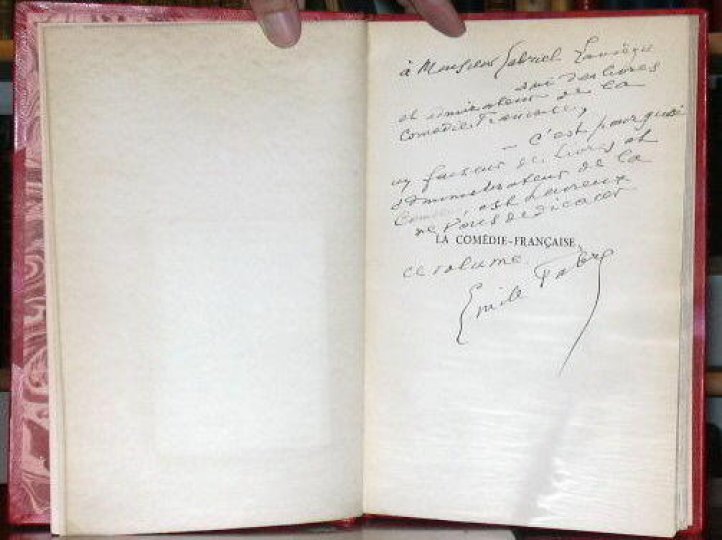 à Monsieur Gabriel
ami des livres
et admirateur de la
Comédie Française,
— c'est pourquoi
un faiseur de livres et
administrateur de la
Comédie, est heureux
de vous dédicacer
LA COMÉDIE-FRANÇAISE
ce volume
Emile Fabre